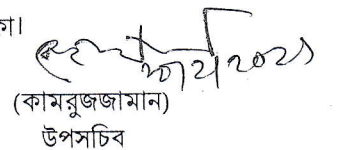 কা।
(কামরুজজামান)
উপসচিব